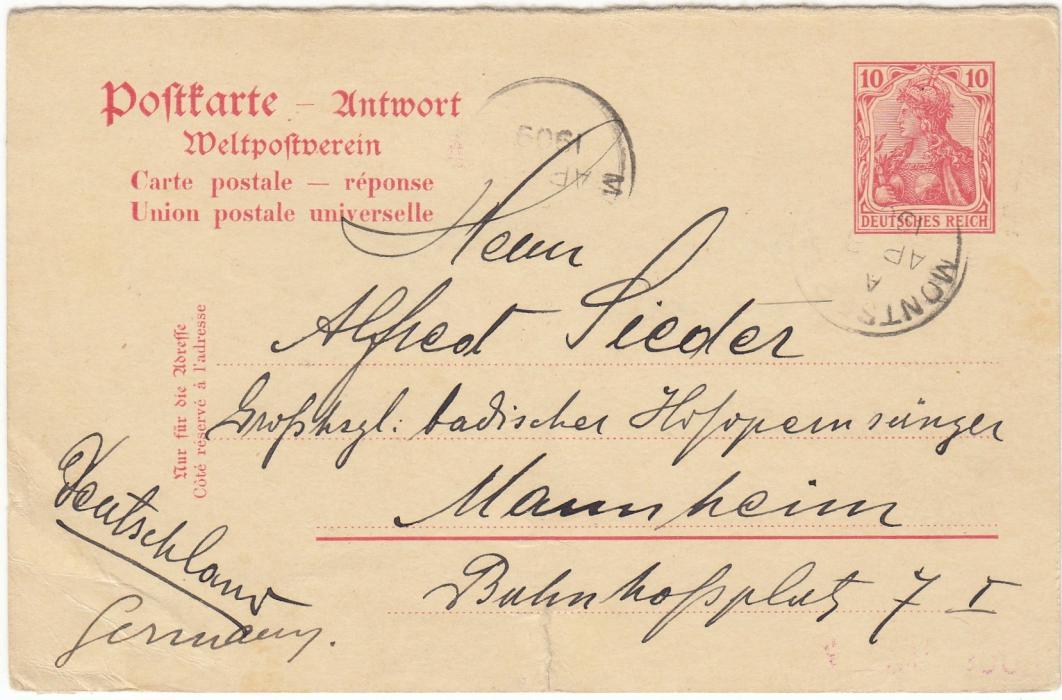 Postkarte – Antwort
Weltpostverein
Carte postale – réponse
Union postale universelle
10 10
DEUTSCHES REICH
1909
AP
M
MONTS
A
AP
19
Nur für die Adresse
Côté réservé à l'adresse
Herrn
Alfred Sieder
Großhzgl: badischer Hofopernsänger
Mannheim
Bahnhofsplatz 7 I
Deutschland
Germany.